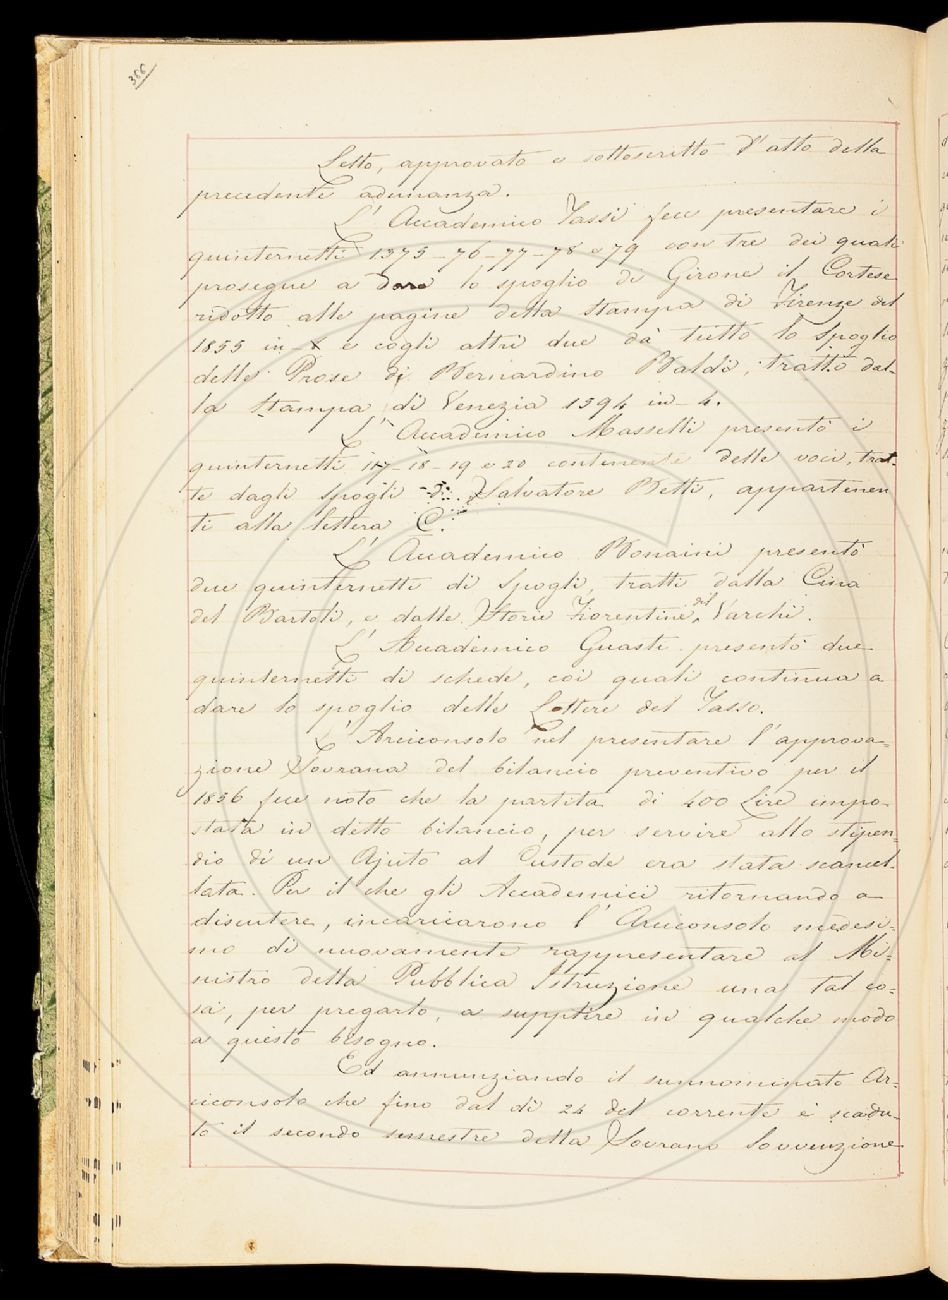 366
Letto, approvato e sottoscritto l'atto della
precedente adunanza.
L' Accademico Tassi fece presentare i
quinternetti 1375-76-77-78 e 79 con tre dei quali
prosegue a dare lo spoglio di Girone il Cortese
ridotto alle pagine della stampa di Firenze del
1855 in-8 e cogli altri due dà tutto lo Spoglio
delle Prose di Bernardino Baldi, tratto dal-
la stampa di Venezia 1594 in-4.
L' Accademico Masselli presentò i
quinternetti 117-18-19 e 20 contenente delle voci, trat-
te dagli spogli di Salvatore Betti, appartenen
ti alla lettera C.
L' Accademico Bonaini presentò
due quinternetti di Spogli, tratti dalla Cina
del Bartoli, e dalle Storie Fiorentine del Varchi.
L' Accademico Guasti presentò due
quinternetti di schede, coi quali continua a
dare lo spoglio delle Lettere del Tasso.
L' Arciconsolo nel presentare l'approva=
zione Sovrana del bilancio preventivo per il
1856 fece noto che la partita di 400 Lire impo-
stata in detto bilancio, per servire allo stipen=
dio di un Ajuto al Custode era stata scancel-
lata. Per il che gli Accademici ritornando a
discutere, incaricarono l' Arciconsolo medesi=
mo di nuovamente rappresentare al Mi=
nistro della Pubblica Istruzione una tal co=
sa, per pregarlo, a supplire in qualche modo
a questo bisogno.
Ed annunziando il sunnominato Ar=
ciconsolo che fino dal dì 24 del corrente è scadu-
to il secondo semestre della Sovrana Sovvenzione